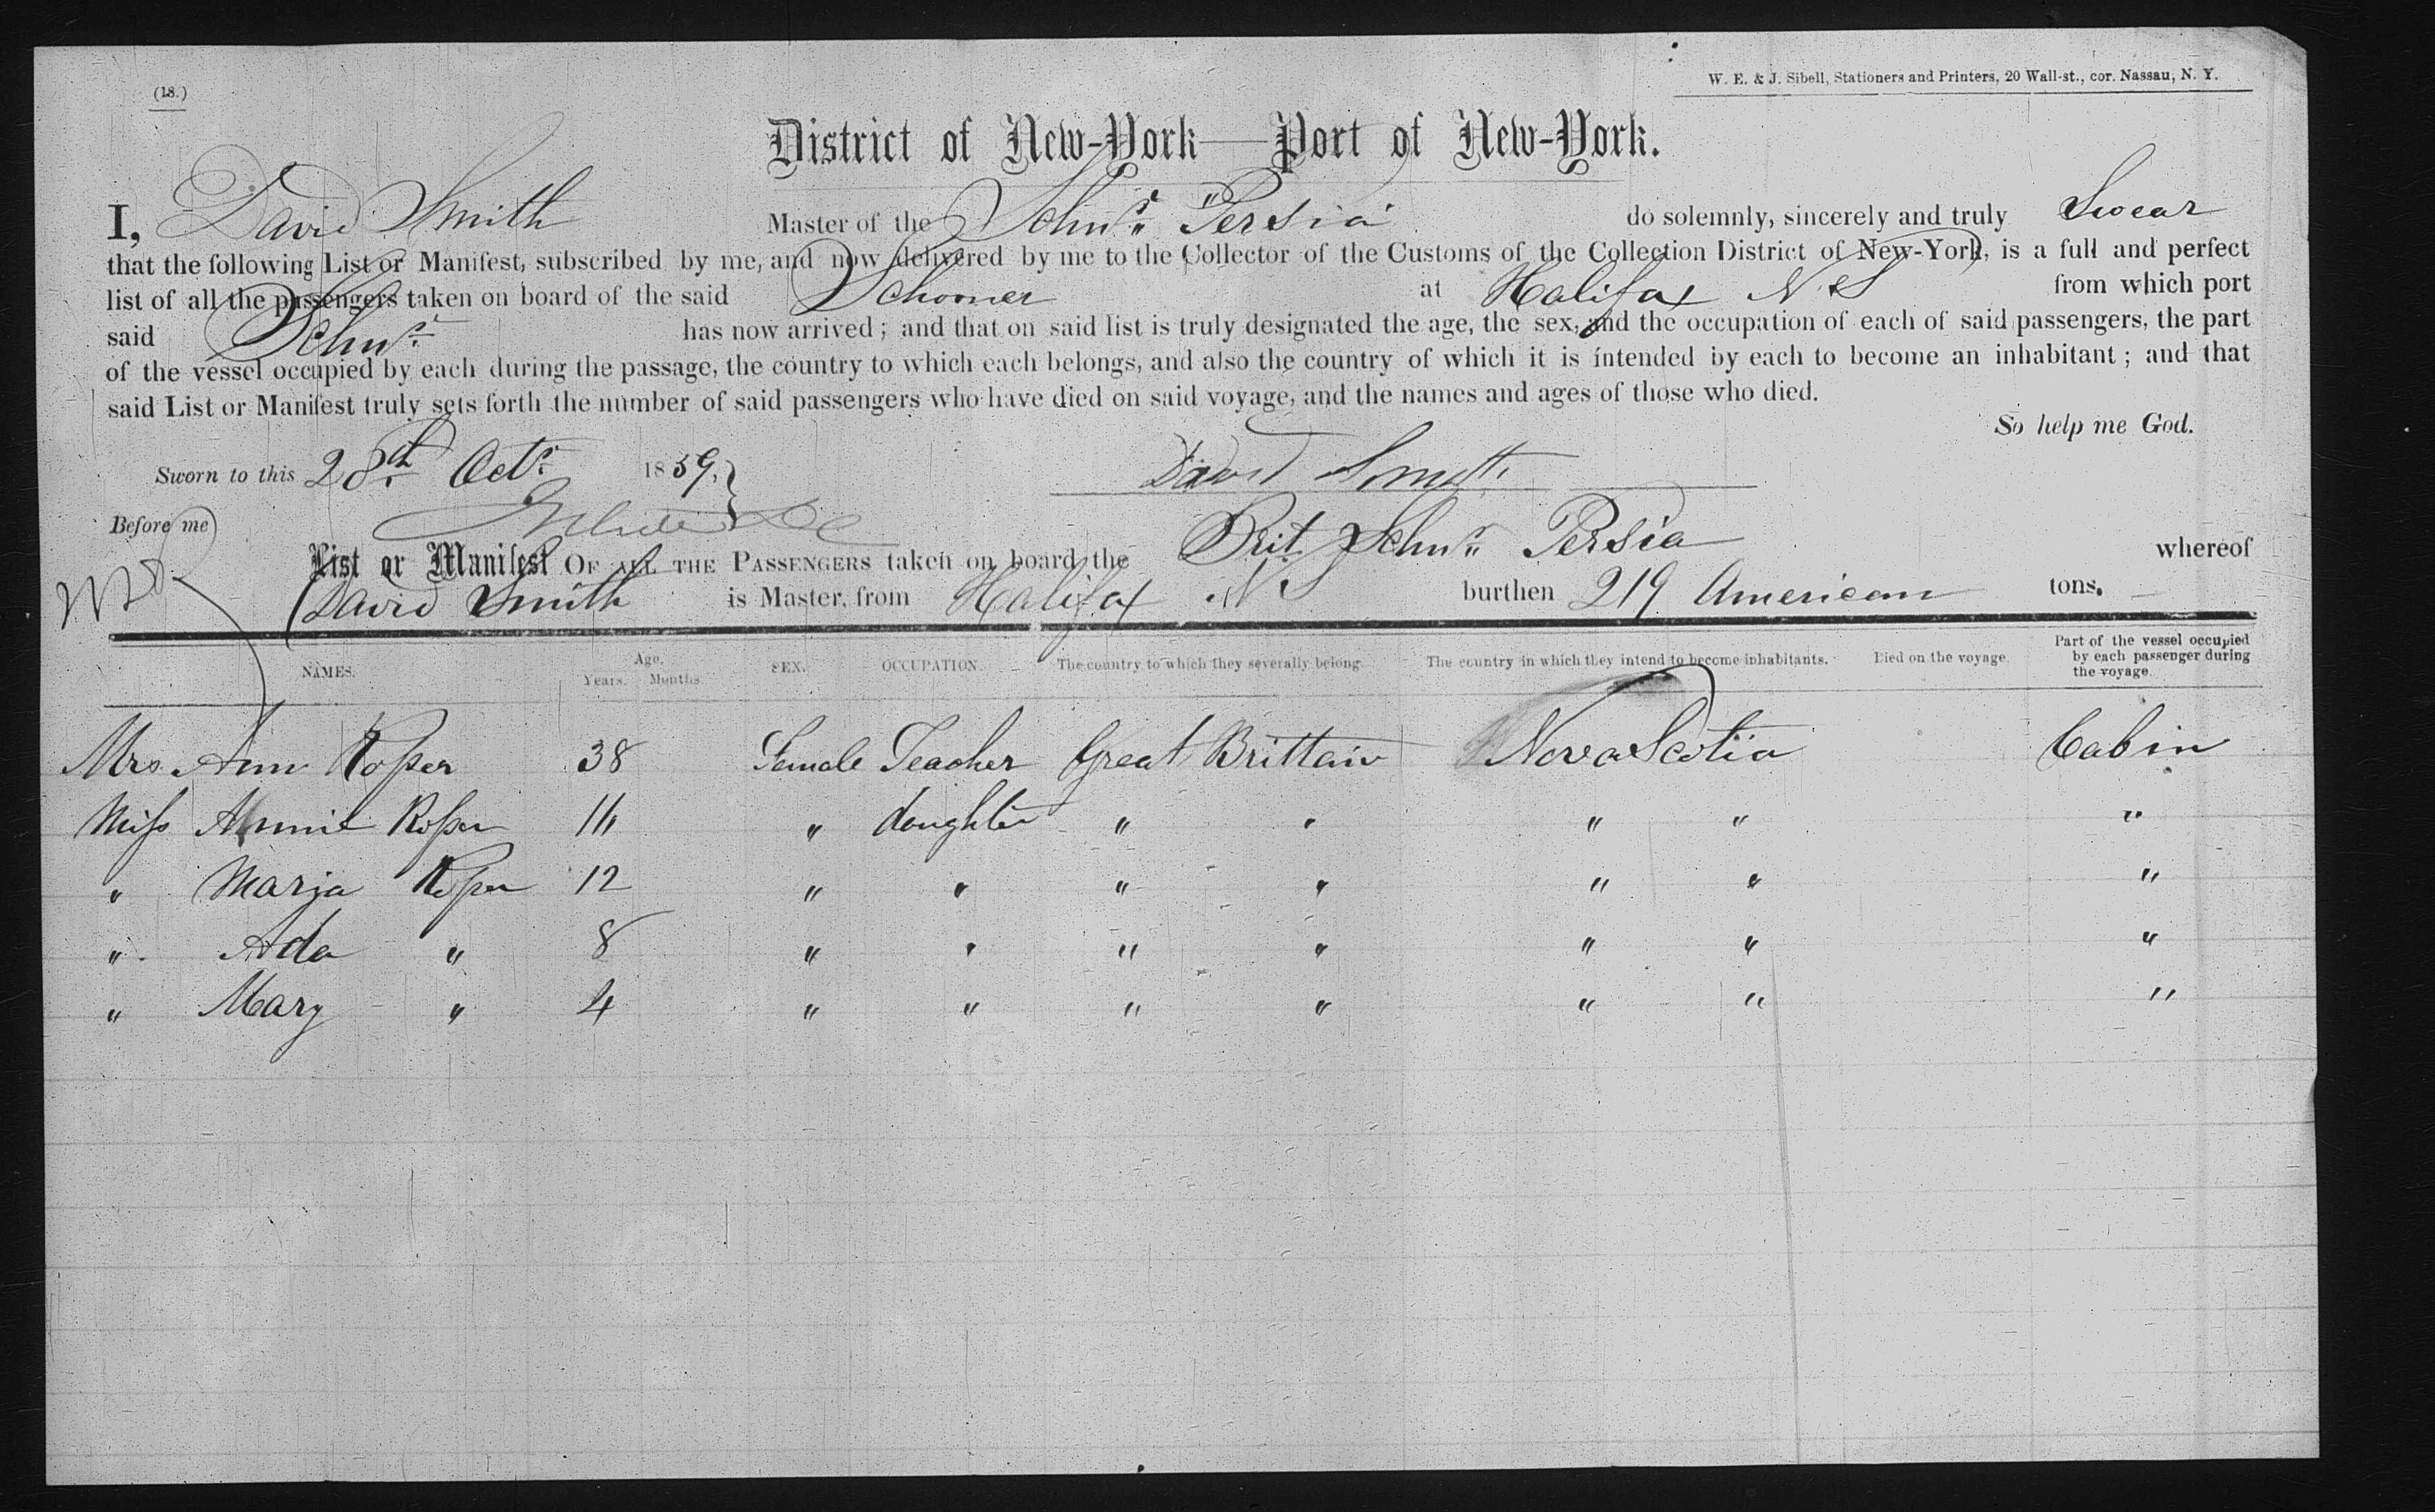 (18.)
W. E. & J. Sibell, Stationers and Printers, 20 Wall-st., cor. Nassau, N. Y.
District of New-York—Port of New-York.
I, David Smith Master of the Schnr. Persia do solemnly, sincerely and truly Swear
that the following List or Manifest, subscribed by me, and now delivered by me to the Collector of the Customs of the Collection District of New-York, is a full and perfect
list of all the passengers taken on board of the said Schooner at Halifax N S from which port
said Schnr. has now arrived; and that on said list is truly designated the age, the sex, and the occupation of each of said passengers, the part
of the vessel occupied by each during the passage, the country to which each belongs, and also the country of which it is intended by each to become an inhabitant; and that
said List or Manifest truly sets forth the number of said passengers who have died on said voyage, and the names and ages of those who died.
So help me God.
Sworn to this 28th Octr. 1859, David Smith
Before me
List or Manifest OF ALL THE PASSENGERS taken on board the Brit. Schnr. Persia whereof
David Smith is Master, from Halifax N S burthen 219 American tons.
NAMES. Age. Years. Months. SEX. OCCUPATION. The country to which they severally belong. The country in which they intend to become inhabitants. Died on the voyage. Part of the vessel occupied by each passenger during the voyage.
Mrs. Ann Roper 38 Female Teacher Great Brittain Nova Scotia Cabin
Miss Annie Roper " daughter " " " " "
" Maria Roper 12 " " " " " " "
" Ada " 8 " " " " " " "
" Mary " 4 " " " " " " "